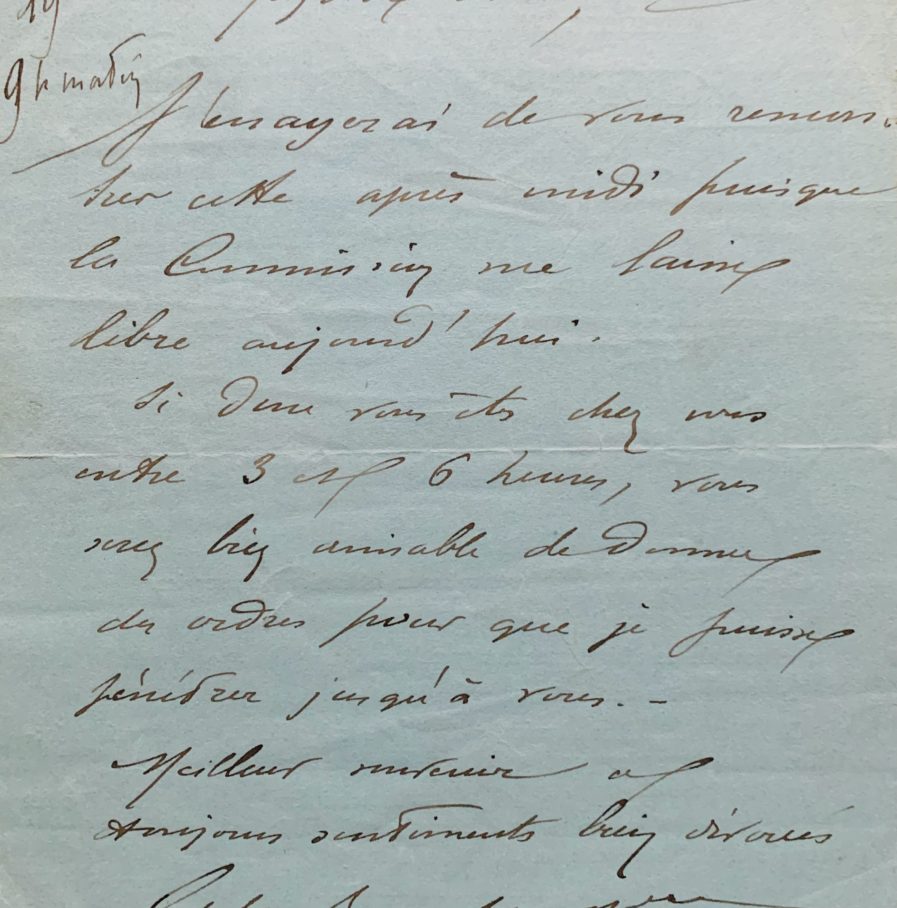 19
9 h matin
J'essayerai de vous rencon-
trer cette après midi puisque
la Commission me laisse
libre aujourd'hui.
Si donc vous êtes chez vous
entre 3 et 6 heures, vous
serez bien aimable de donner
des ordres pour que je puisse
pénétrer jusqu'à vous. -
Meilleur souvenir et
toujours sentiments bien dévoués